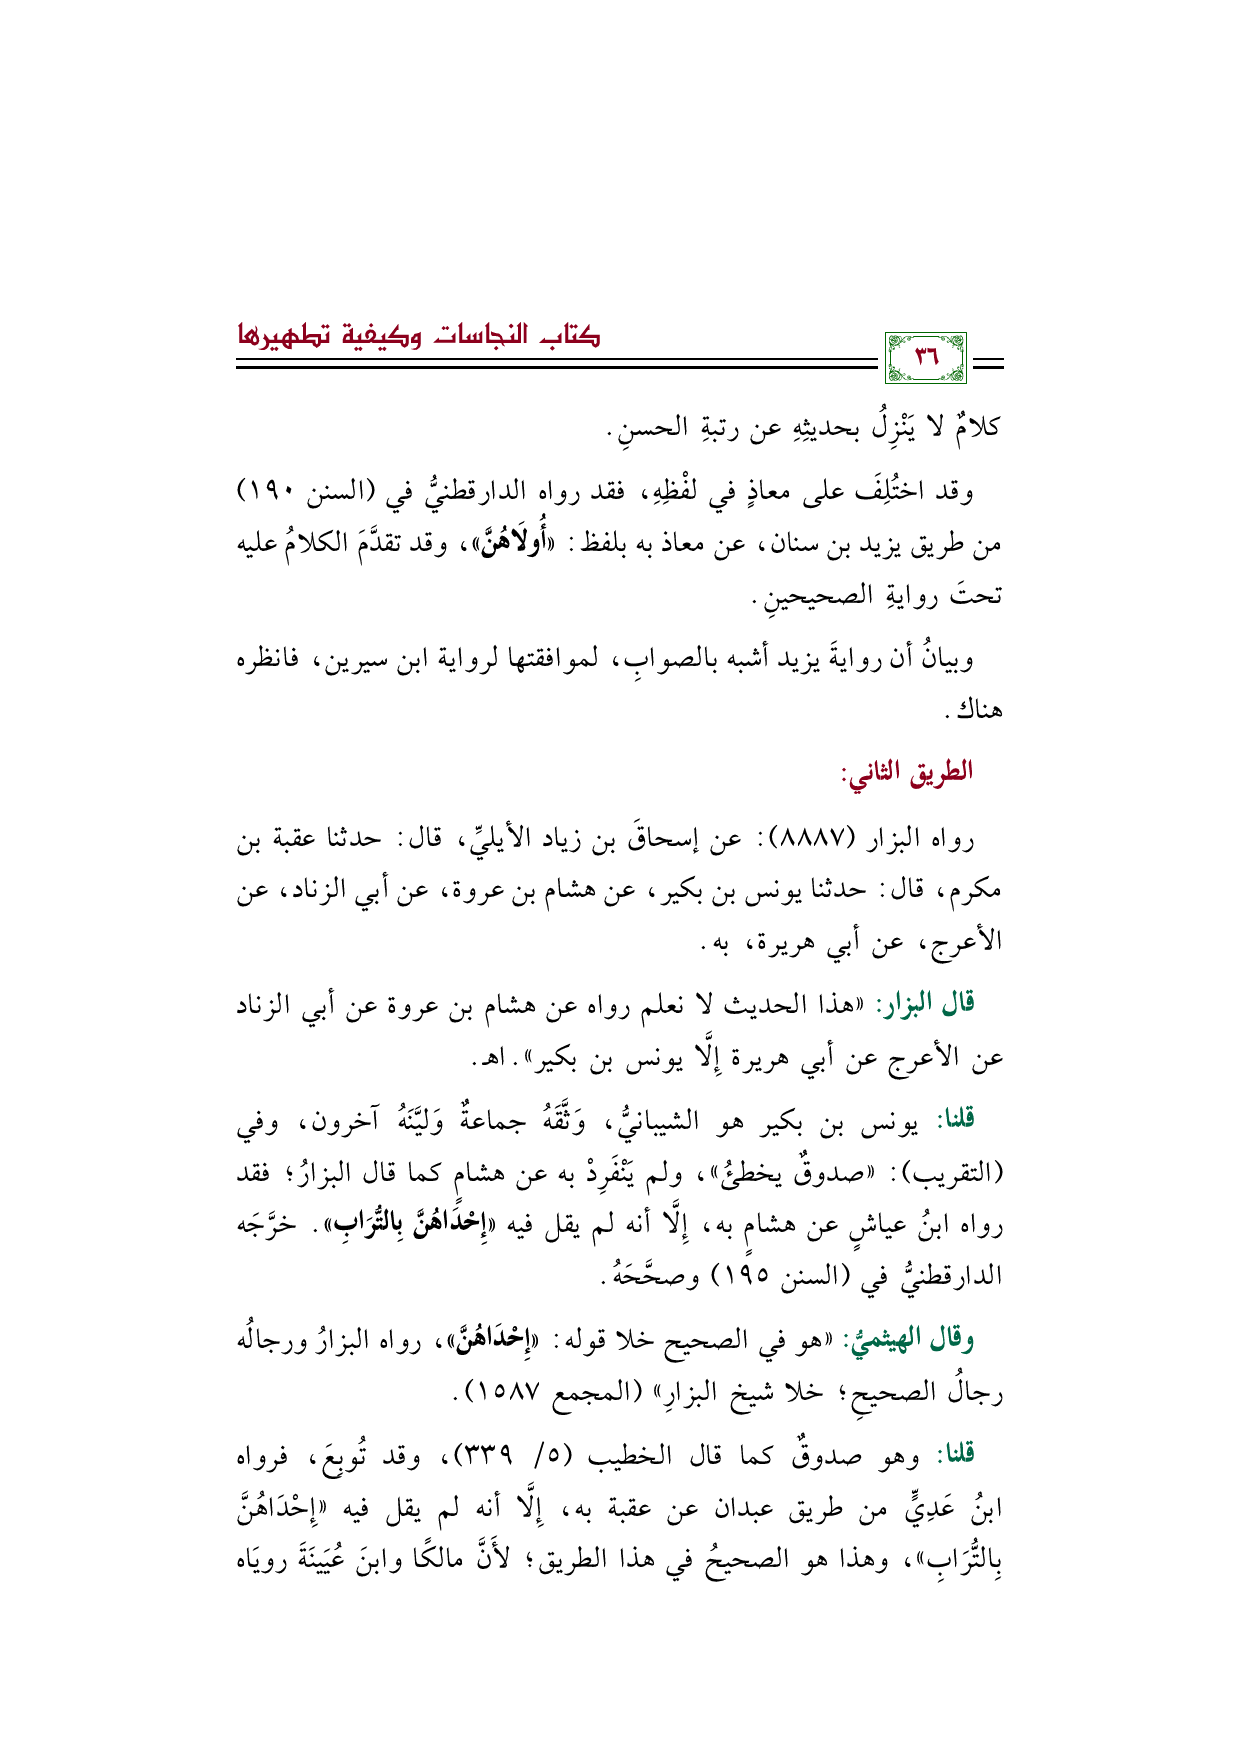 كتاب النجاسات وكيفية تطهيرها
٣٦
كلامٌ لا يَنْزِلُ بحديثِهِ عن رتبةِ الحسنِ.
وقد اختُلِفَ على معاذٍ في لفْظِهِ، فقد رواه الدارقطنيُّ في (السنن ١٩٠)
من طريق يزيد بن سنان، عن معاذ به بلفظ: «أُولَاهُنَّ»، وقد تقدَّمَ الكلامُ عليه
تحتَ روايةِ الصحيحينِ.
وبيانُ أن روايةَ يزيد أشبه بالصوابِ، لموافقتها لرواية ابن سيرين، فانظره
هناك.
الطريق الثاني:
رواه البزار (٨٨٨٧): عن إسحاقَ بن زياد الأيليِّ، قال: حدثنا عقبة بن
مكرم، قال: حدثنا يونس بن بكير، عن هشام بن عروة، عن أبي الزناد، عن
الأعرج، عن أبي هريرة، به.
قال البزار: «هذا الحديث لا نعلم رواه عن هشام بن عروة عن أبي الزناد
عن الأعرج عن أبي هريرة إِلَّا يونس بن بكير». اهـ.
قلنا: يونس بن بكير هو الشيبانيُّ، وَثَّقَهُ جماعةٌ وَليَّنَهُ آخرون، وفي
(التقريب): «صدوقٌ يخطئُ»، ولم يَنْفَرِدْ به عن هشامٍ كما قال البزارُ؛ فقد
رواه ابنُ عياشٍ عن هشامٍ به، إِلَّا أنه لم يقل فيه «إِحْدَاهُنَّ بِالتُّرَابِ». خرَّجَه
الدارقطنيُّ في (السنن ١٩٥) وصحَّحَهُ.
وقال الهيثميُّ: «هو في الصحيح خلا قوله: «إِحْدَاهُنَّ»، رواه البزارُ ورجالُه
رجالُ الصحيحِ؛ خلا شيخ البزارِ» (المجمع ١٥٨٧).
قلنا: وهو صدوقٌ كما قال الخطيب (٥/ ٣٣٩)، وقد تُوبِعَ، فرواه
ابنُ عَدِيٍّ من طريق عبدان عن عقبة به، إِلَّا أنه لم يقل فيه «إِحْدَاهُنَّ
بِالتُّرَابِ»، وهذا هو الصحيحُ في هذا الطريق؛ لأَنَّ مالكًا وابنَ عُيَينَةَ رويَاه